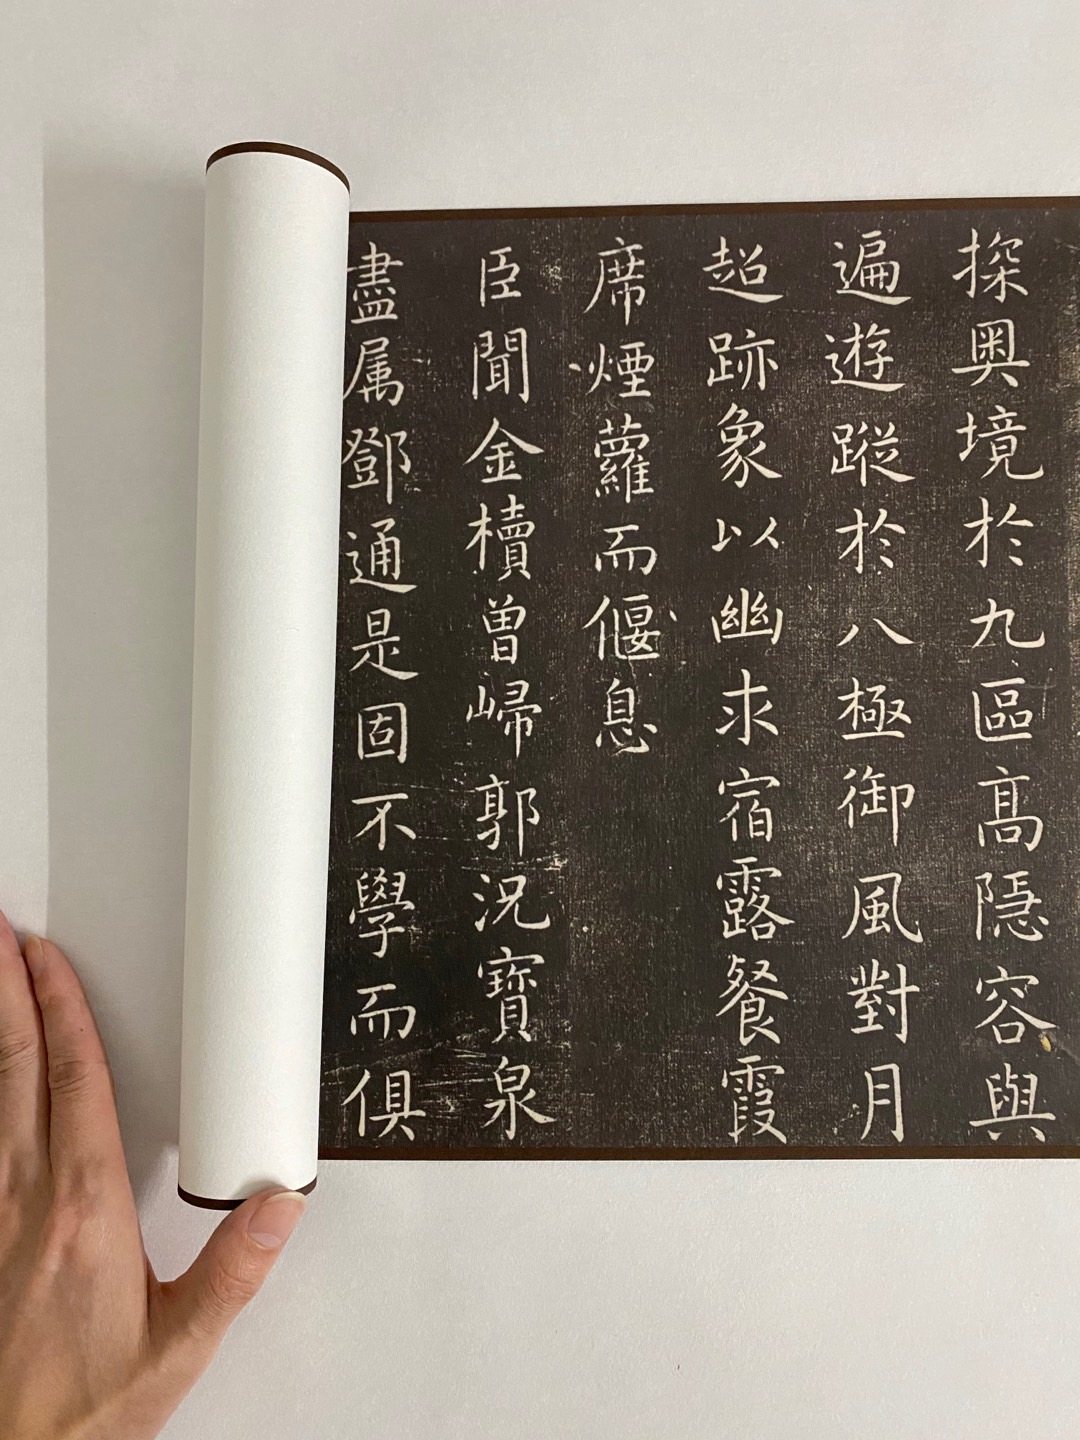 探奥境於九區高隱容與
遍遊蹤於八極御風對月
超跡象以幽求宿露餐霞
席煙蘿而偃息
臣聞金櫝曾歸郭況寶泉
盡属鄧通是固不學而俱